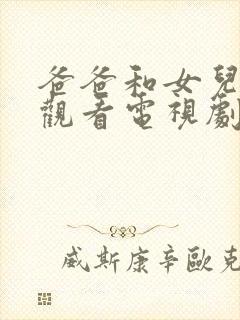 爸爸和女兒
觀看電視劇
威斯康辛歐克